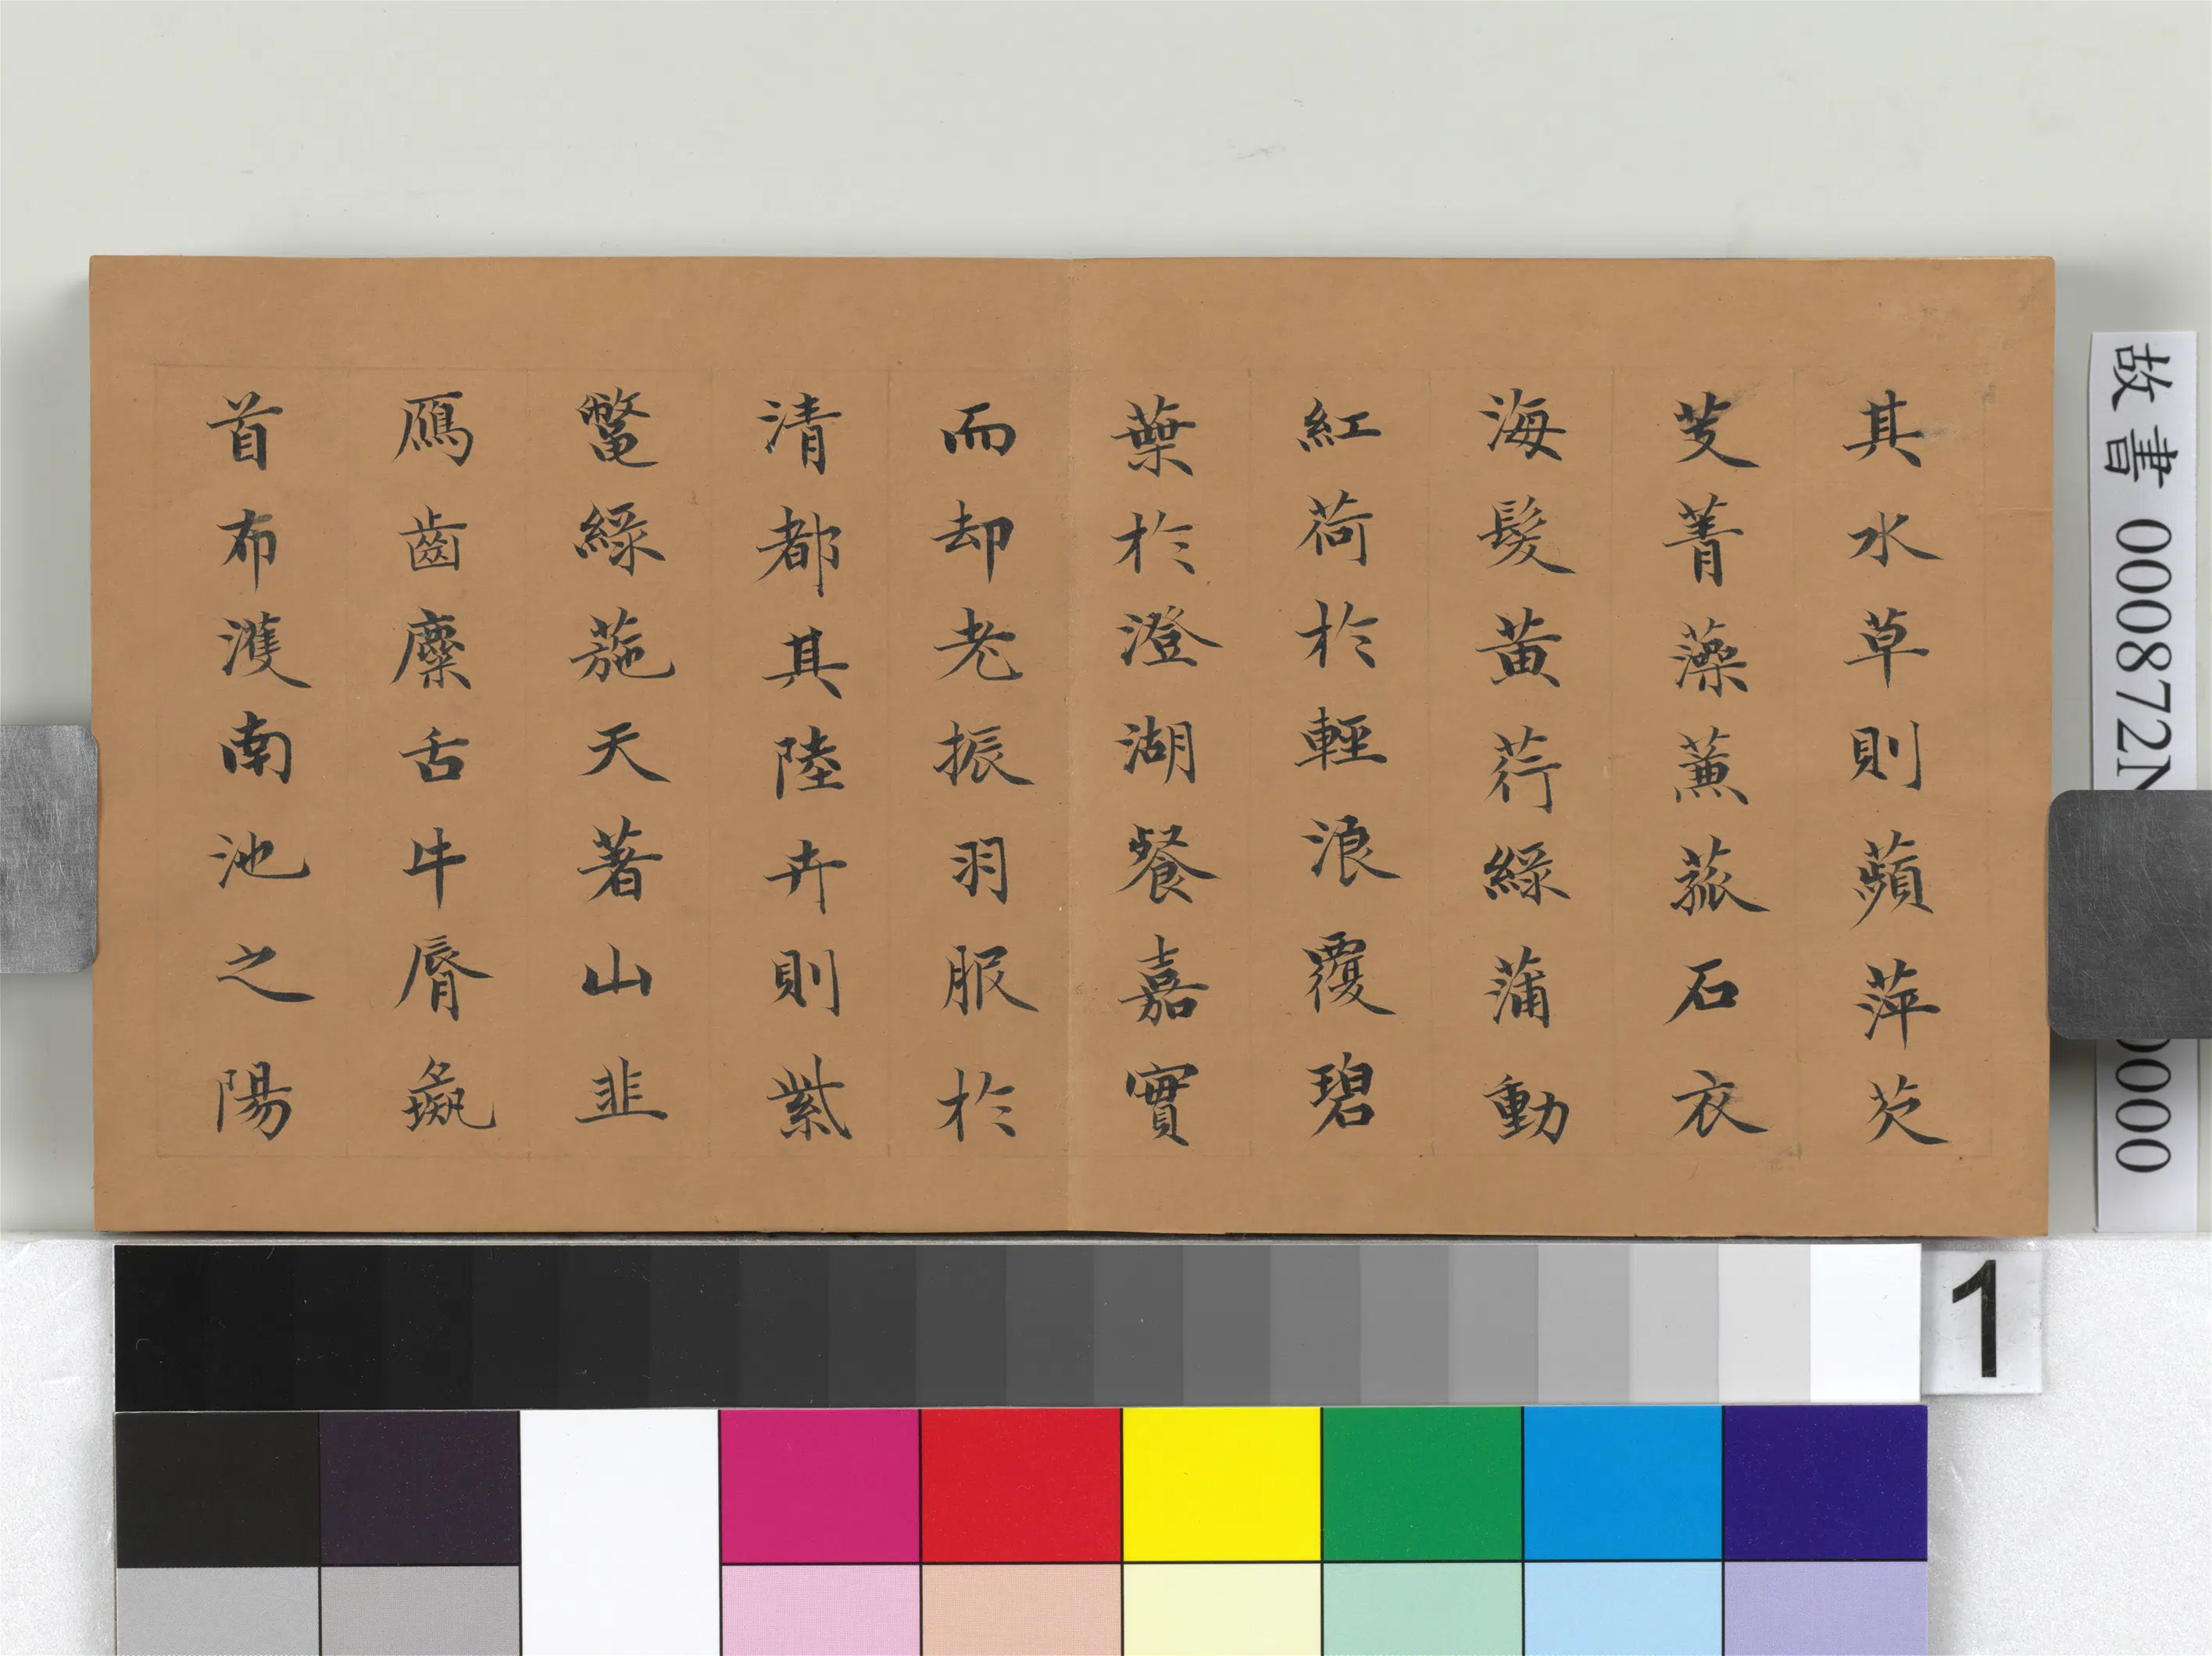 其水草則蘋萍芡
芰菁藻薰菰石衣
海髮黃荇綠蒲動
紅荷於輕浪覆碧
葉於澄湖餐嘉實
而却老振羽服於
清都其陸卉則紫
鼈綠葹天著山韭
鴈齒麋舌牛脣彘
首布濩南池之陽
故書000872N
0000
1